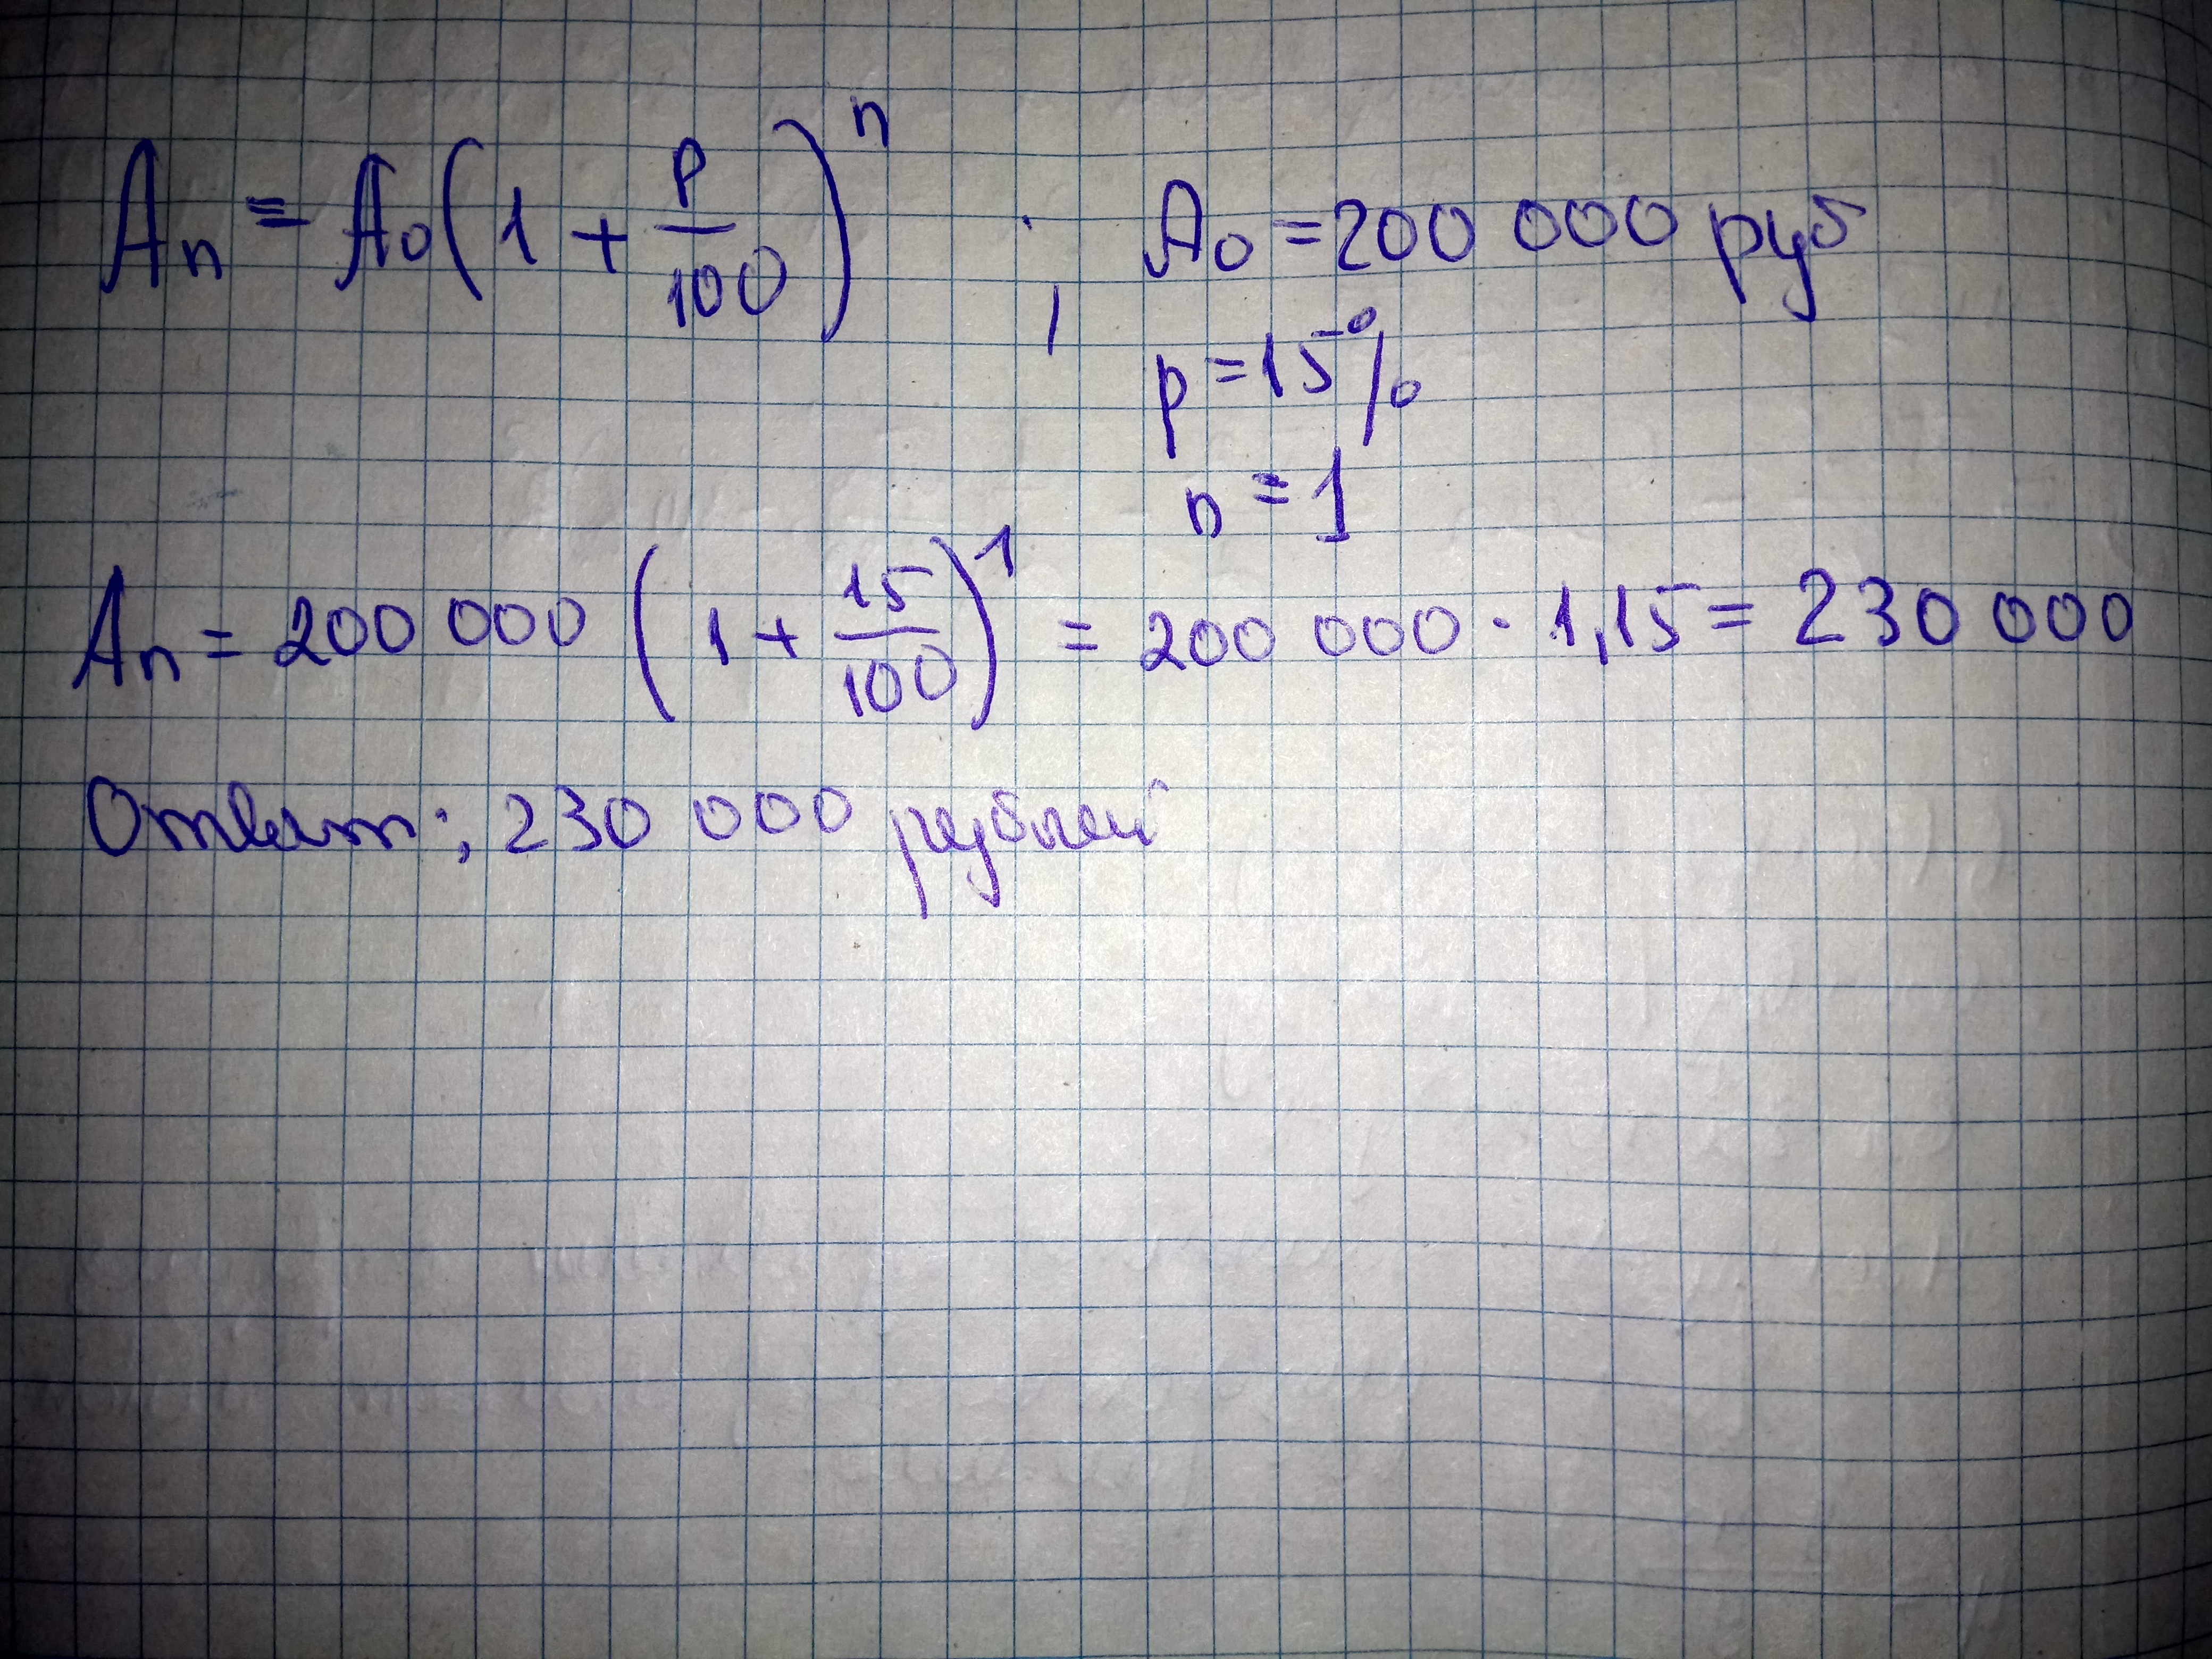 Aₙ = A₀(1 + p/100)ⁿ ; A₀ = 200 000 руб
p = 15%
n = 1
Aₙ = 200 000 (1 + 15/100)¹ = 200 000 · 1,15 = 230 000
Ответ: 230 000 рублей